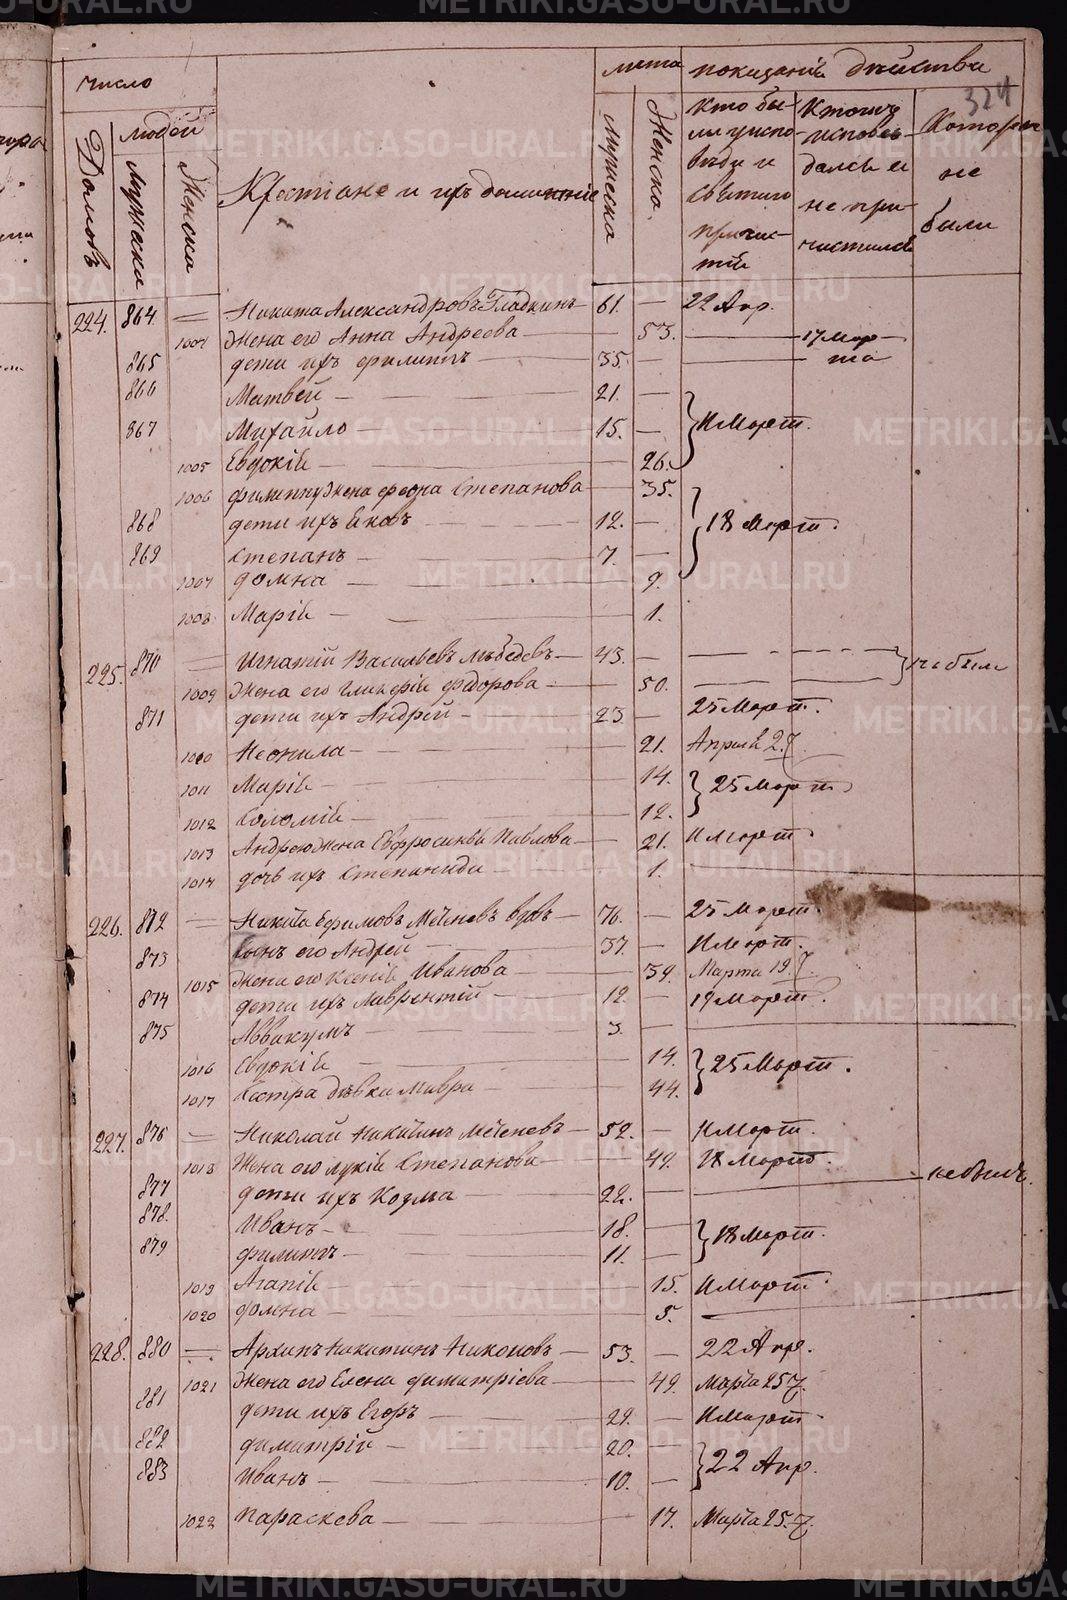 число
лѣта показаніе действа
324
Домовъ
людей
мужска
Женска
Крестіане и ихъ домашніе
мужеска
Женска
Кто бы-
ли у испо-
вѣди и
святаго
причас-
тія
Ктоихъ
исповѣ-
дался и
не при-
частился
Которые
не
были
224. 864. Никита Александровъ Гладкинъ 61. 22 Апр.
1004 Жена его Анна Андреева 53. 17 Мар-
865 дети ихъ филиппъ 35. та
866 Матвей 21.
867 Михайло 15. } Март.
1005 Евдокія 26.
1006 филиппу Жена феона Степанова 35.
868 дети ихъ Яковъ 12. } 18 Март.
869 Степанъ 7.
1007 домна 9.
1008 Марія 1.
225. 870 Игнатій Васильевъ Лѣбедевъ 43. } не были
1009 Жена его гликерія федорова 50.
871 дети ихъ Андрей 23 25 Март.
1010 Неонила 21. Апреля 27
1011 Марія 14. } 25 Март
1012 Соломія 12.
1013 Андрею Жена Евфросинья Павлова 21. Март
1014 дочь ихъ Степанида 1.
226. 872 Никита Ефимовъ вдовъ 76. 25 Март.
873 сынъ его Андрей 37. Март.
1015 Жена его Ксенія Иванова 39. Марта 19
874 дети ихъ Лаврентій 12 19 Март.
875 Аввакумъ 3.
1016 Евдокія 14. } 25 Март.
1017 Сестра дѣвка Мавра 44.
227. 876 Николай Никитинъ 52. Март.
1018 Жена его лукія Степанова 49. 18 Март.
877 дети ихъ Козма 22. небылъ.
878. Иванъ 18. } 18 Март.
879 филиппъ 11.
1019 Агапія 15. Март.
1020 домна 5.
228. 880 Архипъ Никитинъ Никоновъ 53. 22 Апр.
1021 Жена его Елена димитріева 49. Марта 25
881 дети ихъ Егоръ 22. Март
882 димитрій 20. } 22 Апр.
883 Иванъ 10.
1022 параскева 17. Марта 25.
METRIKI.GASO-URAL.RU